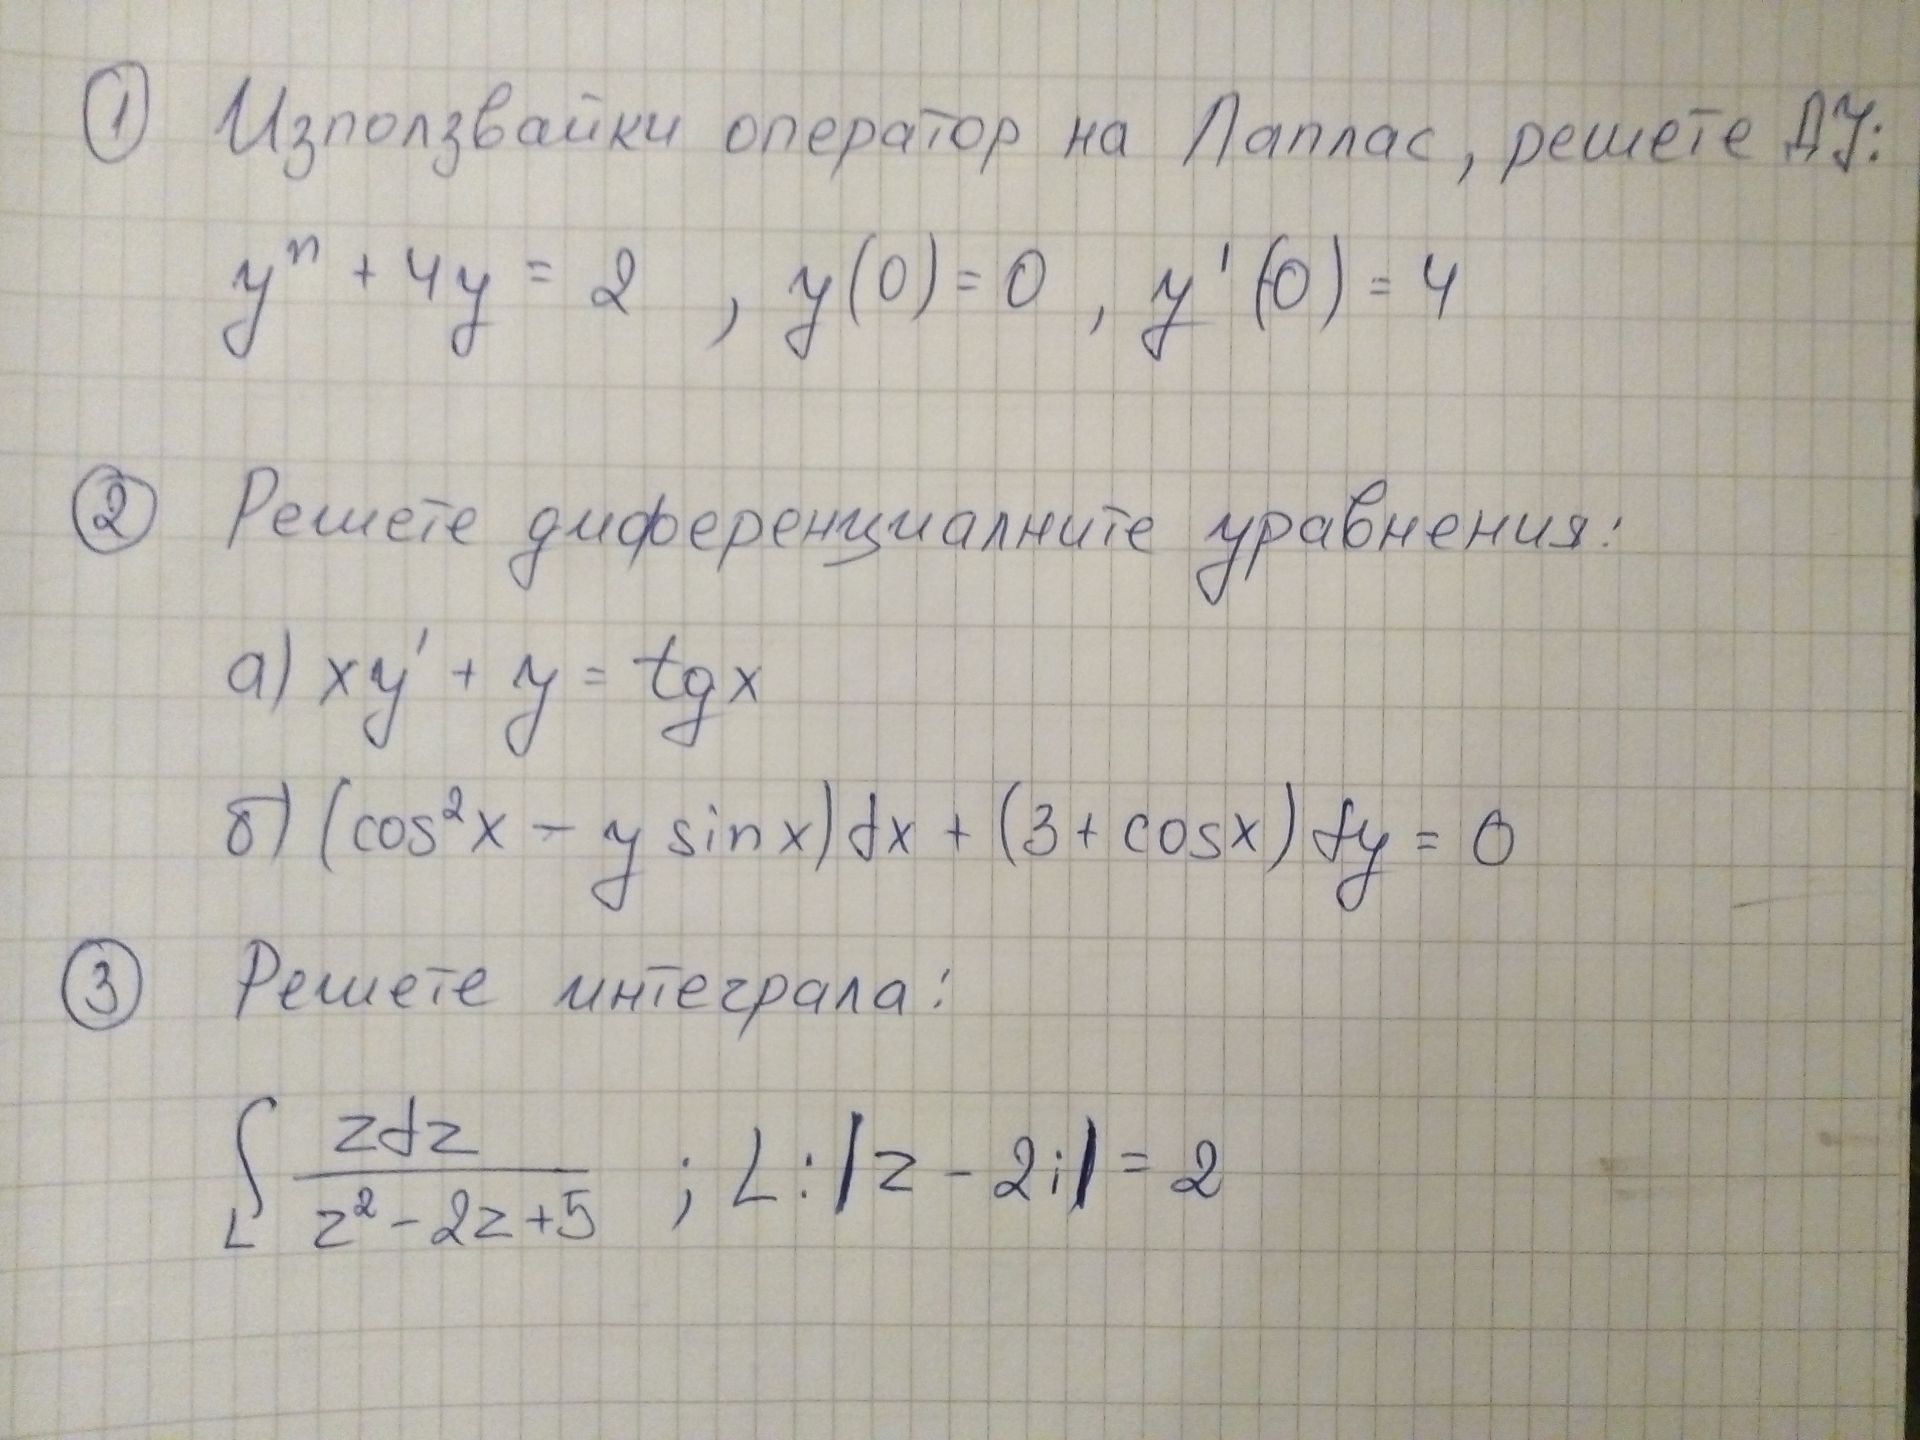 ① Използвайки оператор на Лаплас, решете ДУ:
yⁿ + 4y = 2 , y(0) = 0 , y'(0) = 4
② Решете диференциалните уравнения:
а) xy' + y = tgx
б) (cos²x - y sinx)dx + (3 + cosx)dy = 0
③ Решете интеграла:
∫_L zdz / (z² - 2z + 5) ; L: |z - 2i| = 2